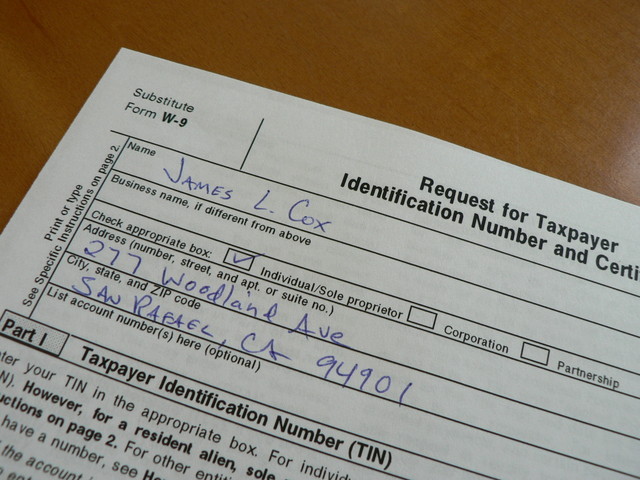 Substitute
Form W-9
Request for Taxpayer
Identification Number and Certi
Print or type
See Specific Instructions on page 2.
Name
JAMES L. COX
Business name, if different from above
Check appropriate box: Individual/Sole proprietor Corporation Partnership
Address (number, street, and apt. or suite no.)
277 Woodland Ave
City, state, and ZIP code
SAN RAFAEL, CA 94901
List account number(s) here (optional)
Part I Taxpayer Identification Number (TIN)
nter your TIN in the appropriate box. For individ
N). However, for a resident alien, sole
uctions on page 2. For other entiti
have a number, see Ho
the account i